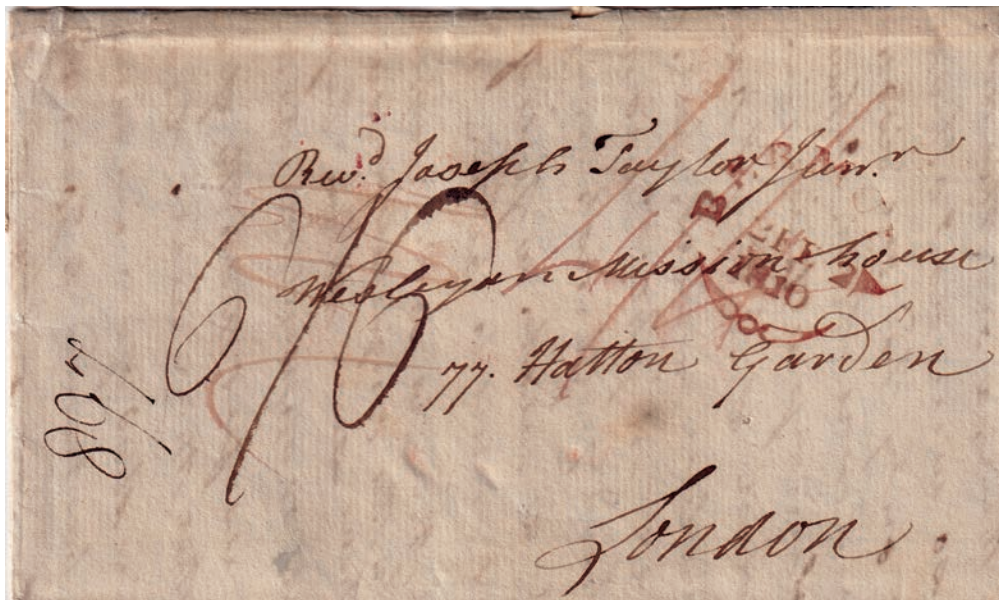 Revd. Joseph Taylor Junr.
Wesleyan Mission house
77. Hatton Garden
London.